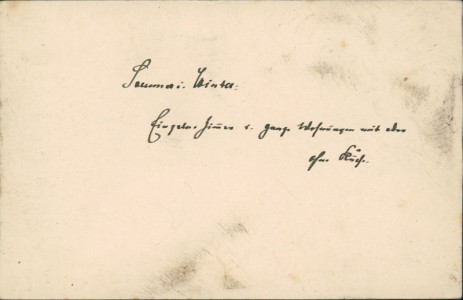 Sommer i. Winter.
Einzelne Zimmer u. ganze Wohnungen mit oder
ohne Küche.